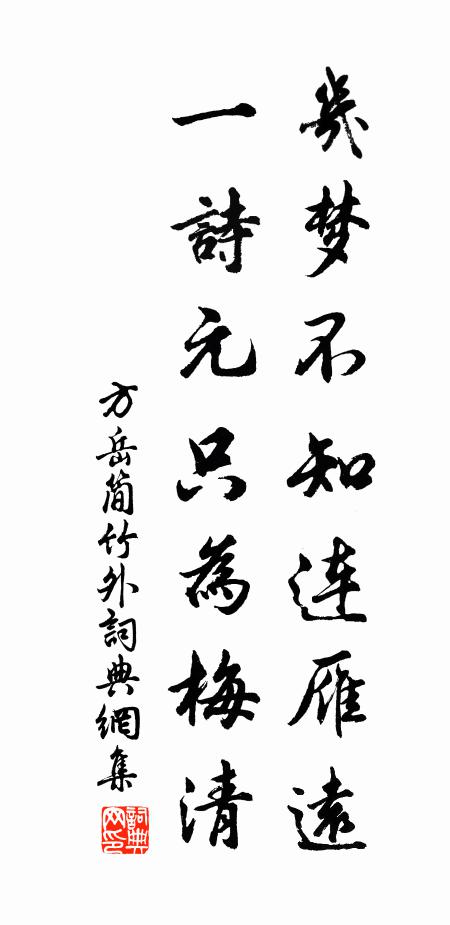 幾梦不知连雁遠
一詩元只為梅清
方岳簡竹外詞典網集
詞典网印